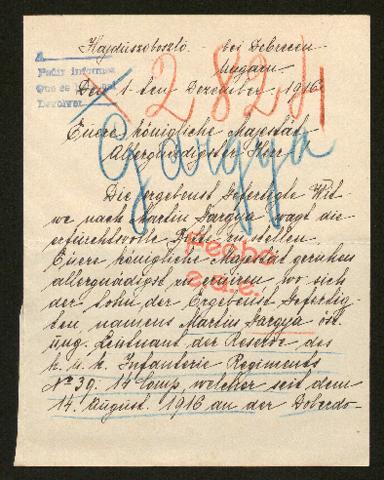 Hajdúszoboszló - bei Debreczen
Ungarn
A
Pedir informes
Devolver
Den 1-ten Dezember, 1916
2824
Euere königliche Majestät
Allergnädigster Herr
Gargya
Die ergebenst Gefertigte Wit-
we nach Martin Gargya wagt die
erfurchtsvolle Bitte zu stellen
Euere königliche Majestät geruhen
allergnädigst zu eruiren wo sich
Fecho
e.s.e.
der Sohn der Ergebenst Gefertig-
ten namens Martin Gargya öst.
ung. Lieutnant der Reserve des
k. u. k. Infanterie Regiments
No 39. 14 Comp. welcher seit dem
14. August. 1916 an der Doberdo-